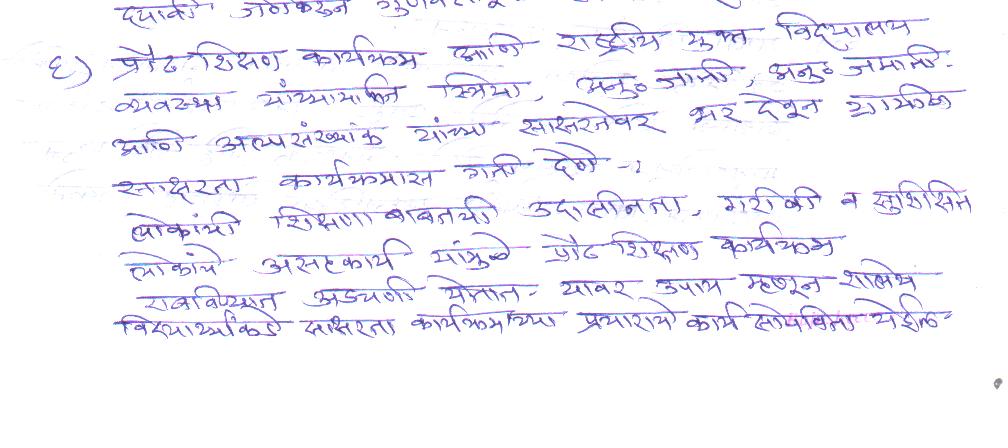 द्यावी जेणेकरून
६) प्रौढ शिक्षण कार्यक्रम आणि राष्ट्रीय मुक्त विद्यालय
व्यवस्था यांच्यामार्फत स्त्रिया, अनु॰ जाती, अनु॰ जमाती-
आणि अल्पसंख्यांक यांच्या साक्षरतेवर भर देवून ग्रामीण
साक्षरता कार्यक्रमास गती देणे -:
लोकांची शिक्षणाबाबतची उदासीनता, गरीबी व सुशिक्षित
लोकांचे असहकार्य यांमुळे प्रौढ शिक्षण कार्यक्रम
राबविण्यात अडचणी येतात- यावर उपाय म्हणून शालेय
विद्यार्थ्यांकडे साक्षरता कार्यक्रमाच्या प्रचाराचे कार्य सोपविता येईल-